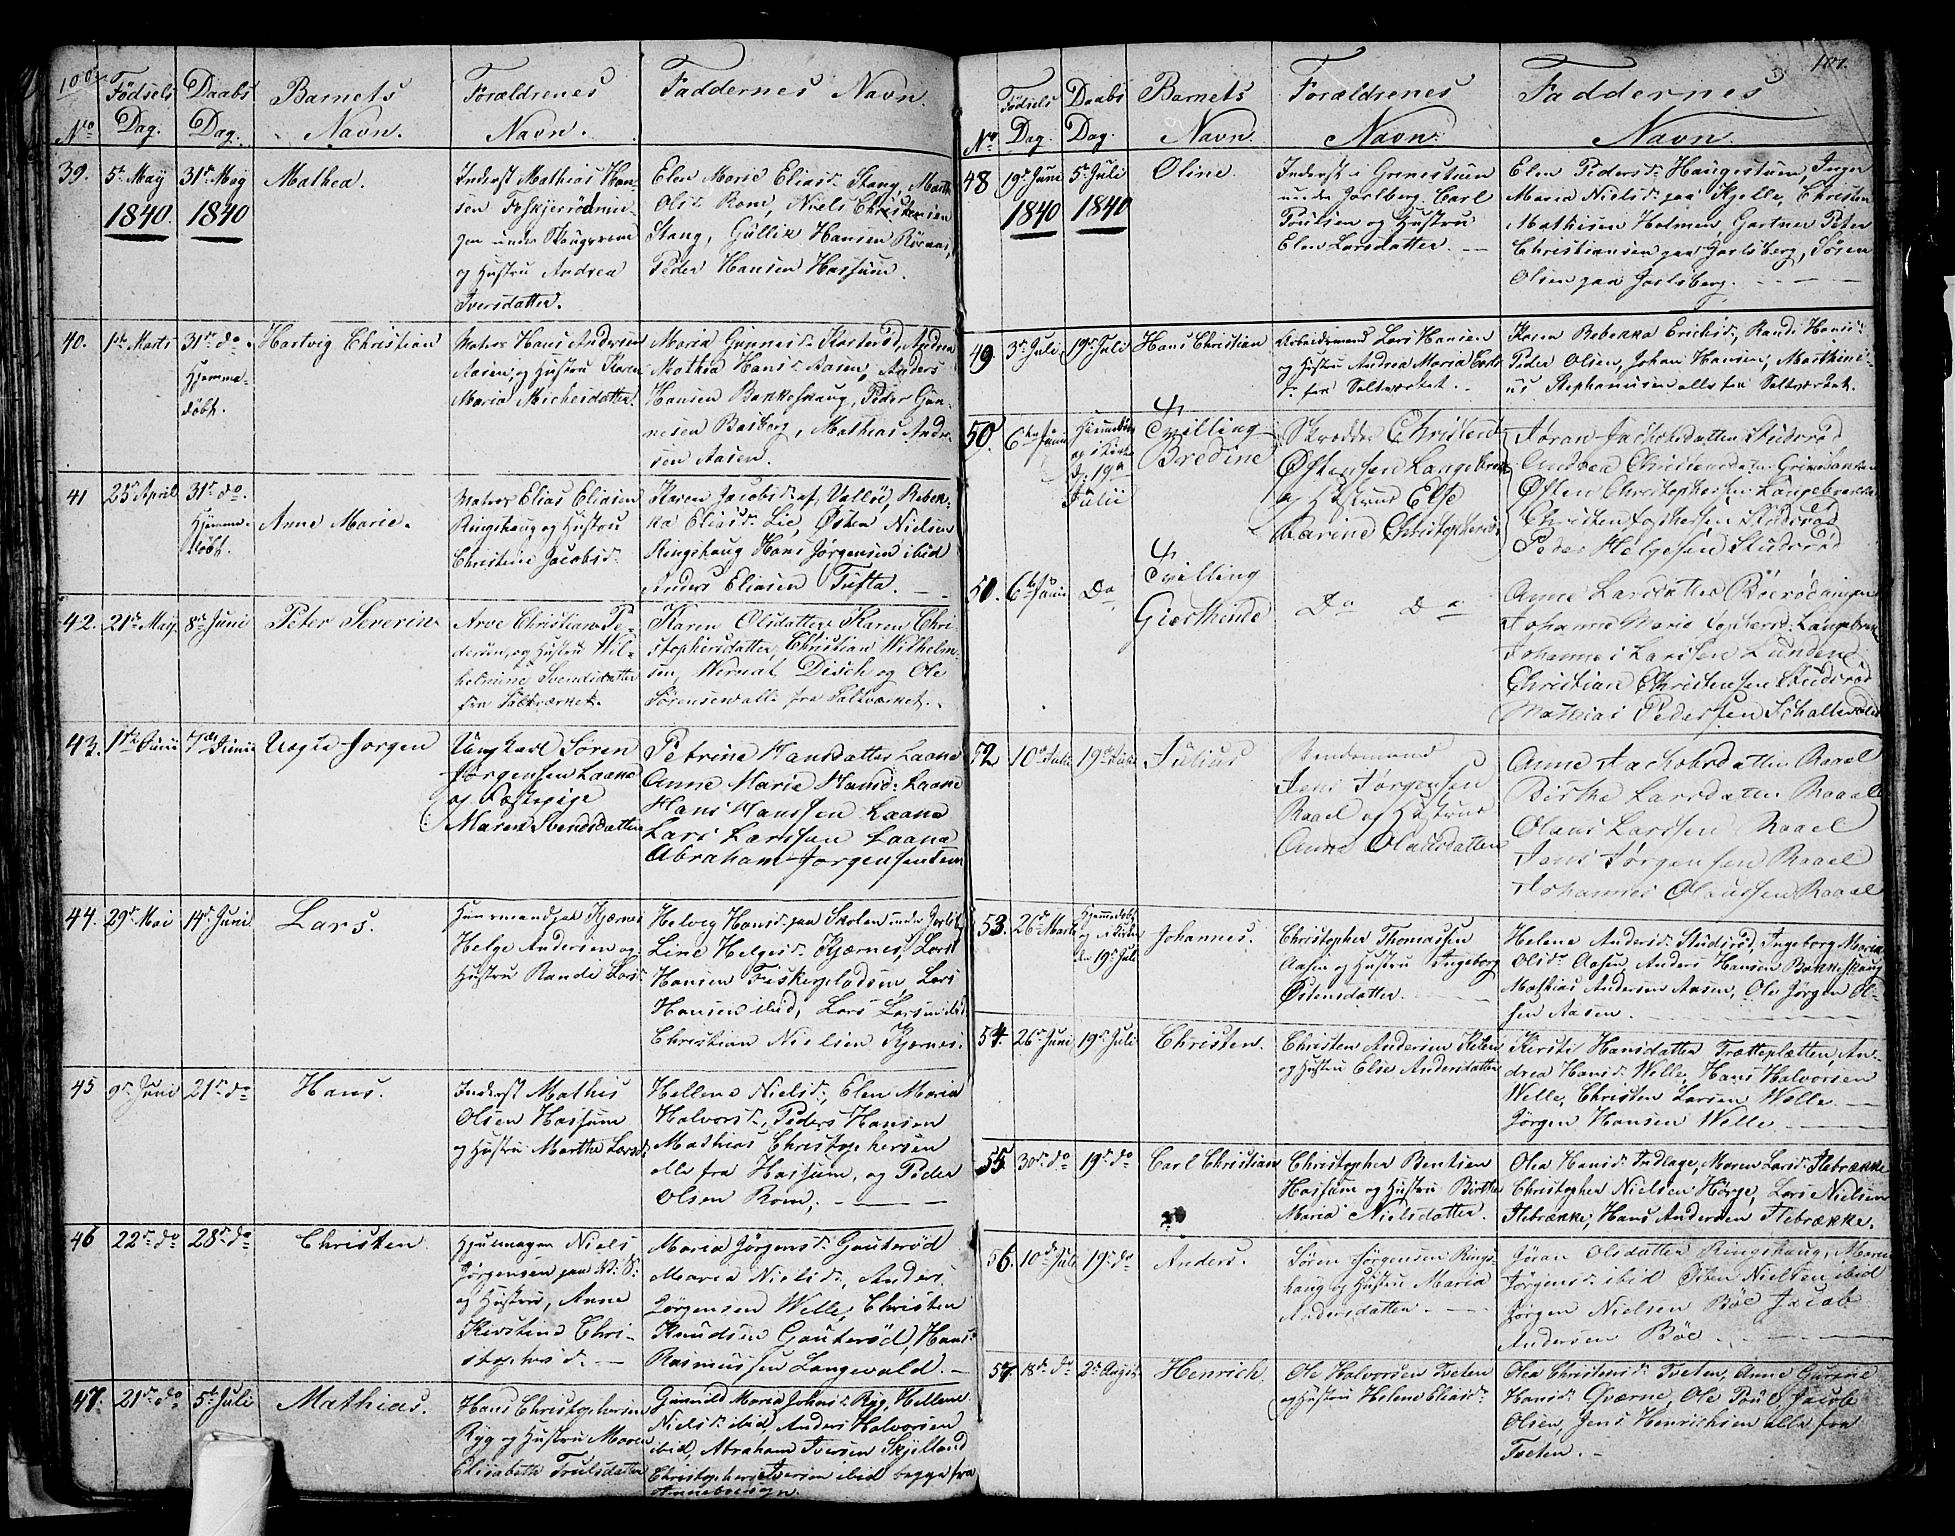 100.
No
Fødsels Dag.
Daabs Dag.
Barnets Navn.
Forældrenes Navn.
Faddernes Navn.
39.
5te May 1840.
31te May 1840
Mathea.
Inderst Mathias Han-
sen
og Hustru Andrea
Iversdatter.
Elen Marie Eliasd. Stang, Marthe
Olsd. Rom, Niels Christensen
Stang, Gullik Hansen
Peder Hansen Hassum.
40.
1te Marts
31te do
Hjemme-
døbt.
Hartvig Christian
Matros Hans Andersen
Aasen, og Hustru Karen
Maria
Maria Gunnesd. Andrea
Mathea Hansd. Aasen, Anders
Hansen Bakkeskaug, Peder Gun-
nesen Basberg, Mathias Andre-
sen Aasen.
41
25de April
31te do.
Hjemme-
døbt.
Anne Marie.
Matros Elias Eliasen
Ringshaug og Hustru
Christine Jacobsd.
Karen Jacobsd. af Valløe, Rebek-
ka Eliasd. Lie, Østen Nielsen
Ringshaug Hans Jørgensen ibid
Anders Eliasen Tufta.
42.
21de May
8de Juni
Peter Severin
Arve Christian Pe-
dersen, og Hustru Wil-
helmine Svendsdatter
fra Saltværket.
Karen Olsdatter Karen Chri-
stophersdatter, Christian Wilhelm-
sen, Wernat Disch og Ole
Sørensen alle fra Saltværket.
43.
1te Junii
7de Junii
Uægte Jørgen
Ungkarl Søren
Jørgensen Laane
og Pige
Maren Svendsdatter
Petrine Hansdatter Laane
Anne Marie Hansd: Laane
Hans Hanssen Laane
Lars Larssen Laane
Abraham Jørgensen Sem
44.
29de Mai
14de Juni
Lars.
Huusmand paa Kjærnes
Helge Andersen og
Hustru Rande Lars-
Helvig Hansd. paa Skolen under Jarlsb.
Line Helgesd. Kjærnes, Lars
Hansen Fiskerpladsen, Lars
Hansen ibid, Lars Larsen ibid
Christian Nielsen Kjærnes.
45
9de Juni
21de do
Hans.
Inderst Mathis
Olsen Hassum
og Hustru Marthe Larsd.
Hellene Nielsd., Elen Maria
Halvorsd., Peders Hansen
Mathias Christophersen
alle fra Hassum, og Peder
Olsen Rom.
46
22de do
28de do
Christen
Hjulmager Niels
Jørgensen paa
og Hustru, Anne
Kirstine Chri-
stophersd.
Maria Jørgensd. Gauterød
Maria Nielsd., Anders
Jørgensen Welle, Christen
Knudsen Gauterød, Hans
Rasmussen Langevald.
47.
21de do
5te Juli
Mathias.
Hans Christophersen
Ryg og Hustru Maren
Elisabeth Trulsdatter
Gunnild Maria Johnsd. Ryg, Hellene
Nielsd. ibid, Anders Halvorsen
ibid, Abraham Iversen Skjelland
Christophersen Iversen ibid begge fra
101.
No
Fødsels Dag.
Daabs Dag.
Barnets Navn.
Forældrenes Navn.
Faddernes Navn.
48
19de Juni 1840
5te Juli 1840
Oline
Inderst i Grenestuen
under Jarlberg. Carl
Poulsen og Hustru
Elen Larsdatter.
Elen Pedersd. Haugestuen, Inger
Maria Nielsd. paa Kjelle, Christen
Mathisen Holmen, Gartner Peter
Christiansen paa Jarlsberg, Søren
Olsen paa Jarlsberg.
49.
3de Juli
19de Juli
Hans Christian
Arbeidsmand Lars Hansen
og Hustru Andrea Maria
fra Saltværket.
Karen Rebekka Erichsd., Rande Hansd.
Peder Olsen, Johan Hansen, Marthini-
us Stephanusen alle fra Saltværket.
50.
6te Junii
Hjemmedøbt
og i Kirke
d. 19de
Julii
Tvilling
Bredine
Skrædder Christen
Østensen Langebrek
og Hustrue Else
Karine Christophersd:
Jøran Jachobsdatter Studsrød
Andrea Christensdatter
Østen Christophersen Langebrekke
Christen Jachobsen Studsrød
Peder Helgesen Studsrød
51.
6te Junii
Do
Tvilling
Giertruide
Do Do
Anne Larsdatter Bøerødningen
Johanne Marie Langebrek
Johannes Larssen Lunden
Christian Christensen Studsrød
Mathias Pedersen
52
10de Julii
19de Julii
Julius
Jens Jørgensen
Raael og Hustrue
Anne Olausdatter
Anne Jachobsdatter Raael
Birthe Larsdatter Raael
Olaus Larssen Raael
Jens Jørgensen Raael
Johannes Olaussen Raael
53.
26de Marts
Hjemmedøbt
og i Kirken
den 19de Juli
Johannes.
Christopher Thomassen
Aasen og Hustru Ingeborg
Østensdatter.
Helene Andersd. Studsrød, Ingeborg Maria
Olsd. Aasen, Anders Hansen Bakkeskaug
Mathias Andersen Aasen, Ole Jørgen Ol-
sen Aasen.
54.
26de Juni
19de Juli
Christen.
Christen Andersen
og Hustru Else Andersdatter
Kirsti Hansdatter Trætteplætten, An-
drea Hansd. Welle, Hans Halvorsen
Welle, Christen Larsen Welle
Jørgen Hansen Welle
55
30de do
19de do
Carl Christian
Christopher Bentsen
Hassum og Hustru Birthe
Maria Nielsdatter.
Olea Hansd. Indlage, Maren Larsd. Ilebrække
Christopher Nielsen Hørge, Lars Nielsen
Ilebrække, Hans Andersen Ilebrække.
56.
10de Juli
19de do
Anders.
Søren Jørgensen Rings-
haug og Hustru Maria
Andersdatter.
Jøran Olsdatter Ringshaug, Maren
Jørgensd. ibid Nielsen ibid
Jørgen Nielsen Bøe Jacob
Andersen Bøe.
57.
18de do
2de August
Henrich.
Ole Halvorsen Tveten
og Hustru Helene Eliasd.
Olea Christensd. Tveten, Anne Gurine
Hansd. Gværne, Ole Poul, Jacob
Olsen, Jens Henrichsen alle fra
Tveten.